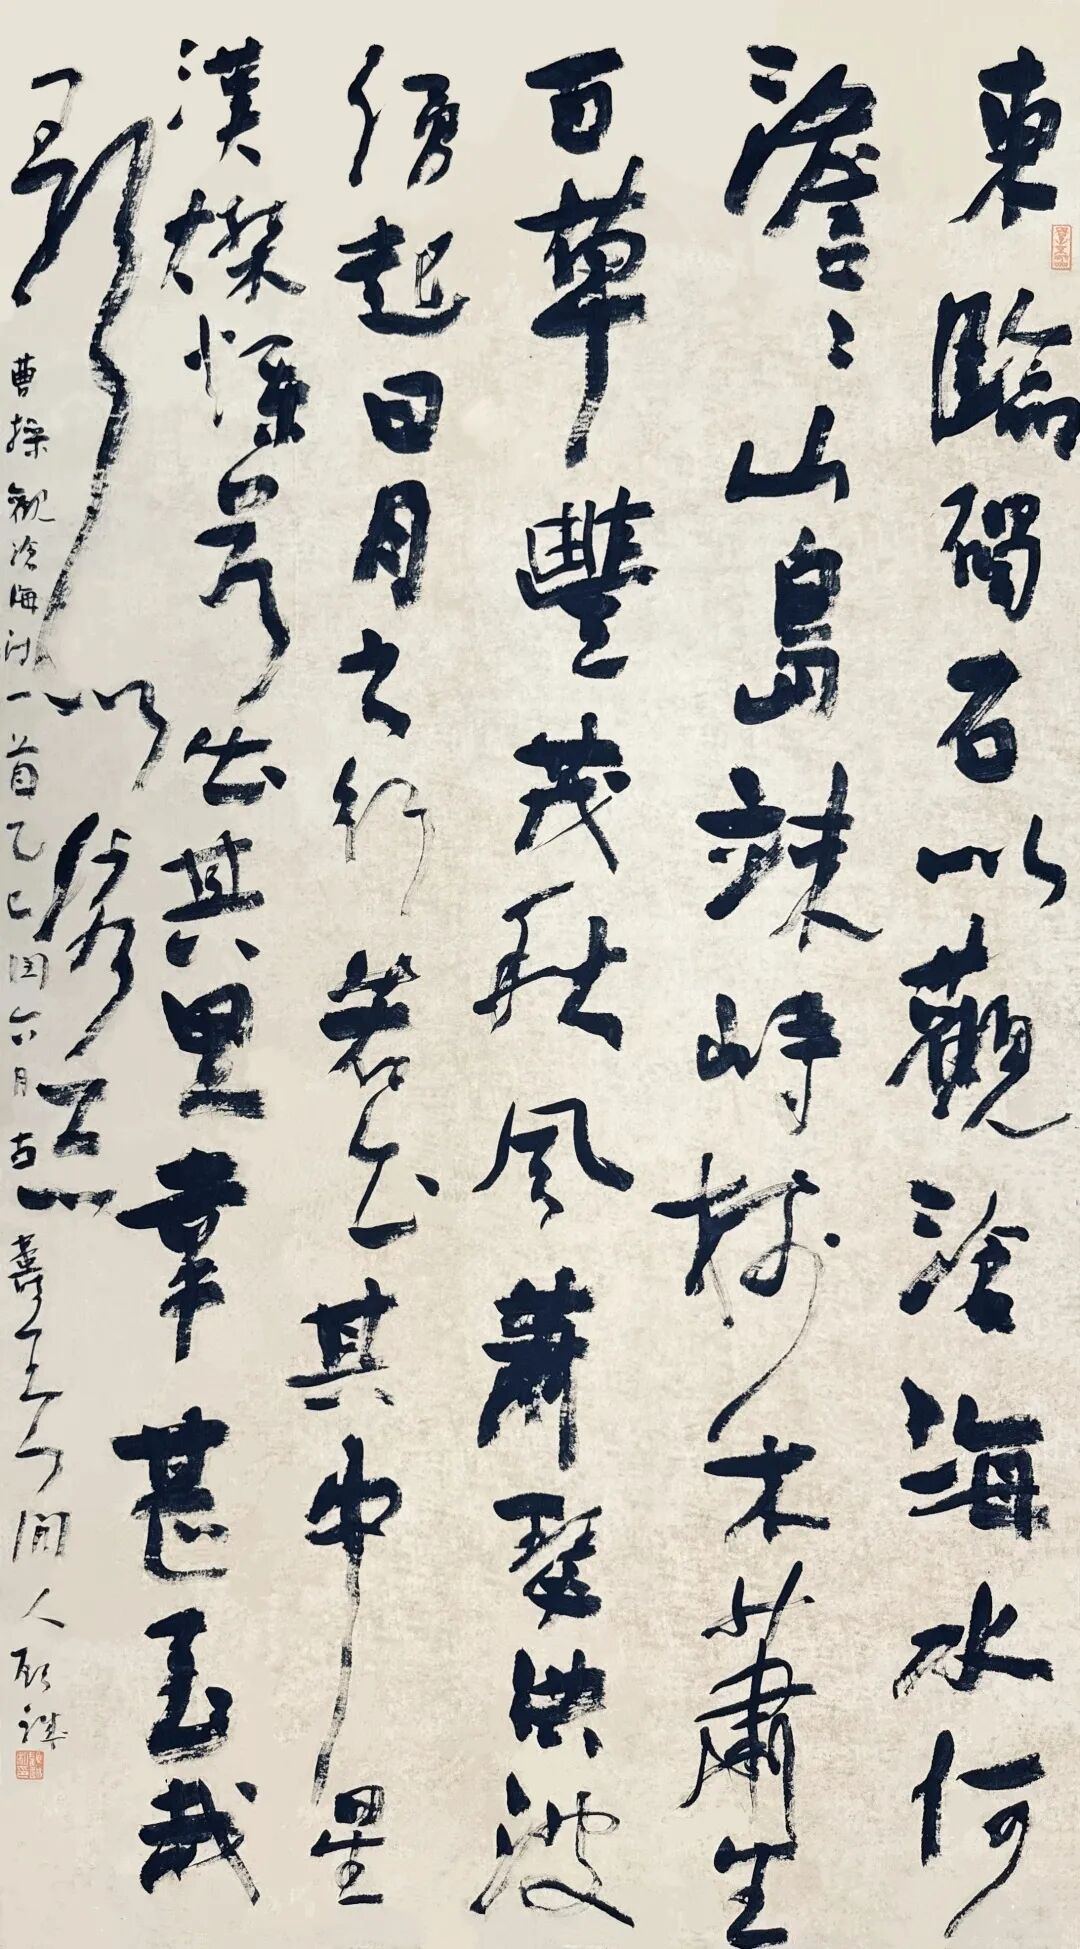 東臨碣石以觀滄海水何
澹〻山島竦峙樹木蕭生
百草豐茂秋風蕭瑟洪波
湧起日月之行若出其中星
漢燦爛若出其里幸甚至哉
歌以詠志
曹操觀滄海詩一首乙巳閏六月古壽